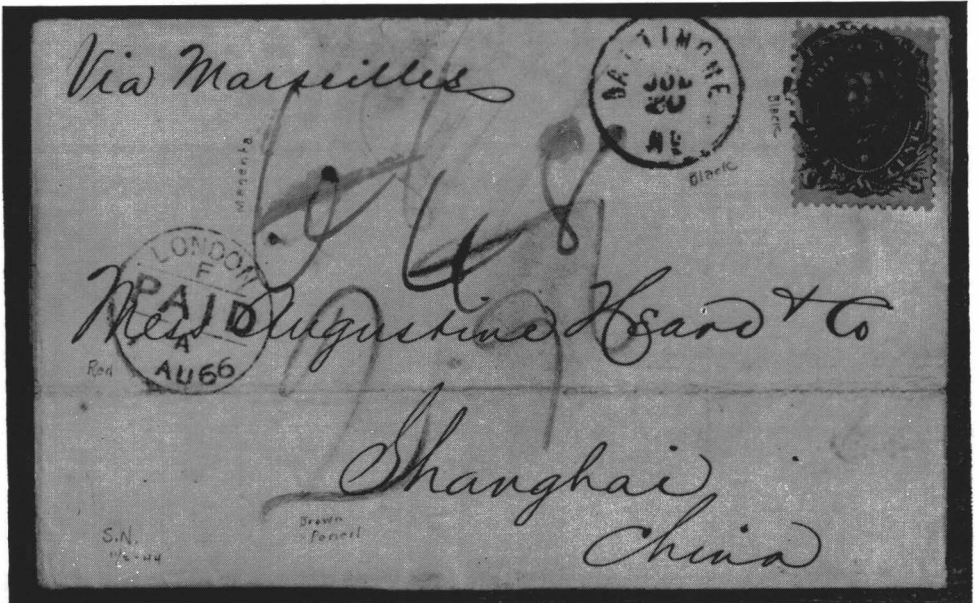 Via Marseilles
BALTIMORE
Black
Black
Magenta
LONDON
F
PAID
A
AU 66
Red
Mess Augustine Heard & Co
Shanghai
China
Brown
Pencil
S.N.